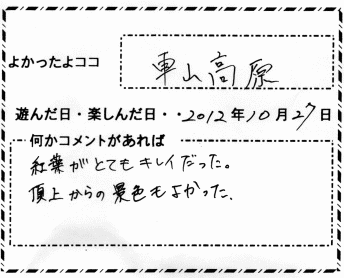 よかったよココ 車山高原
遊んだ日・楽しんだ日・・2012年10月27日
何かコメントがあれば
紅葉がとてもキレイだった。
頂上からの景色もよかった。